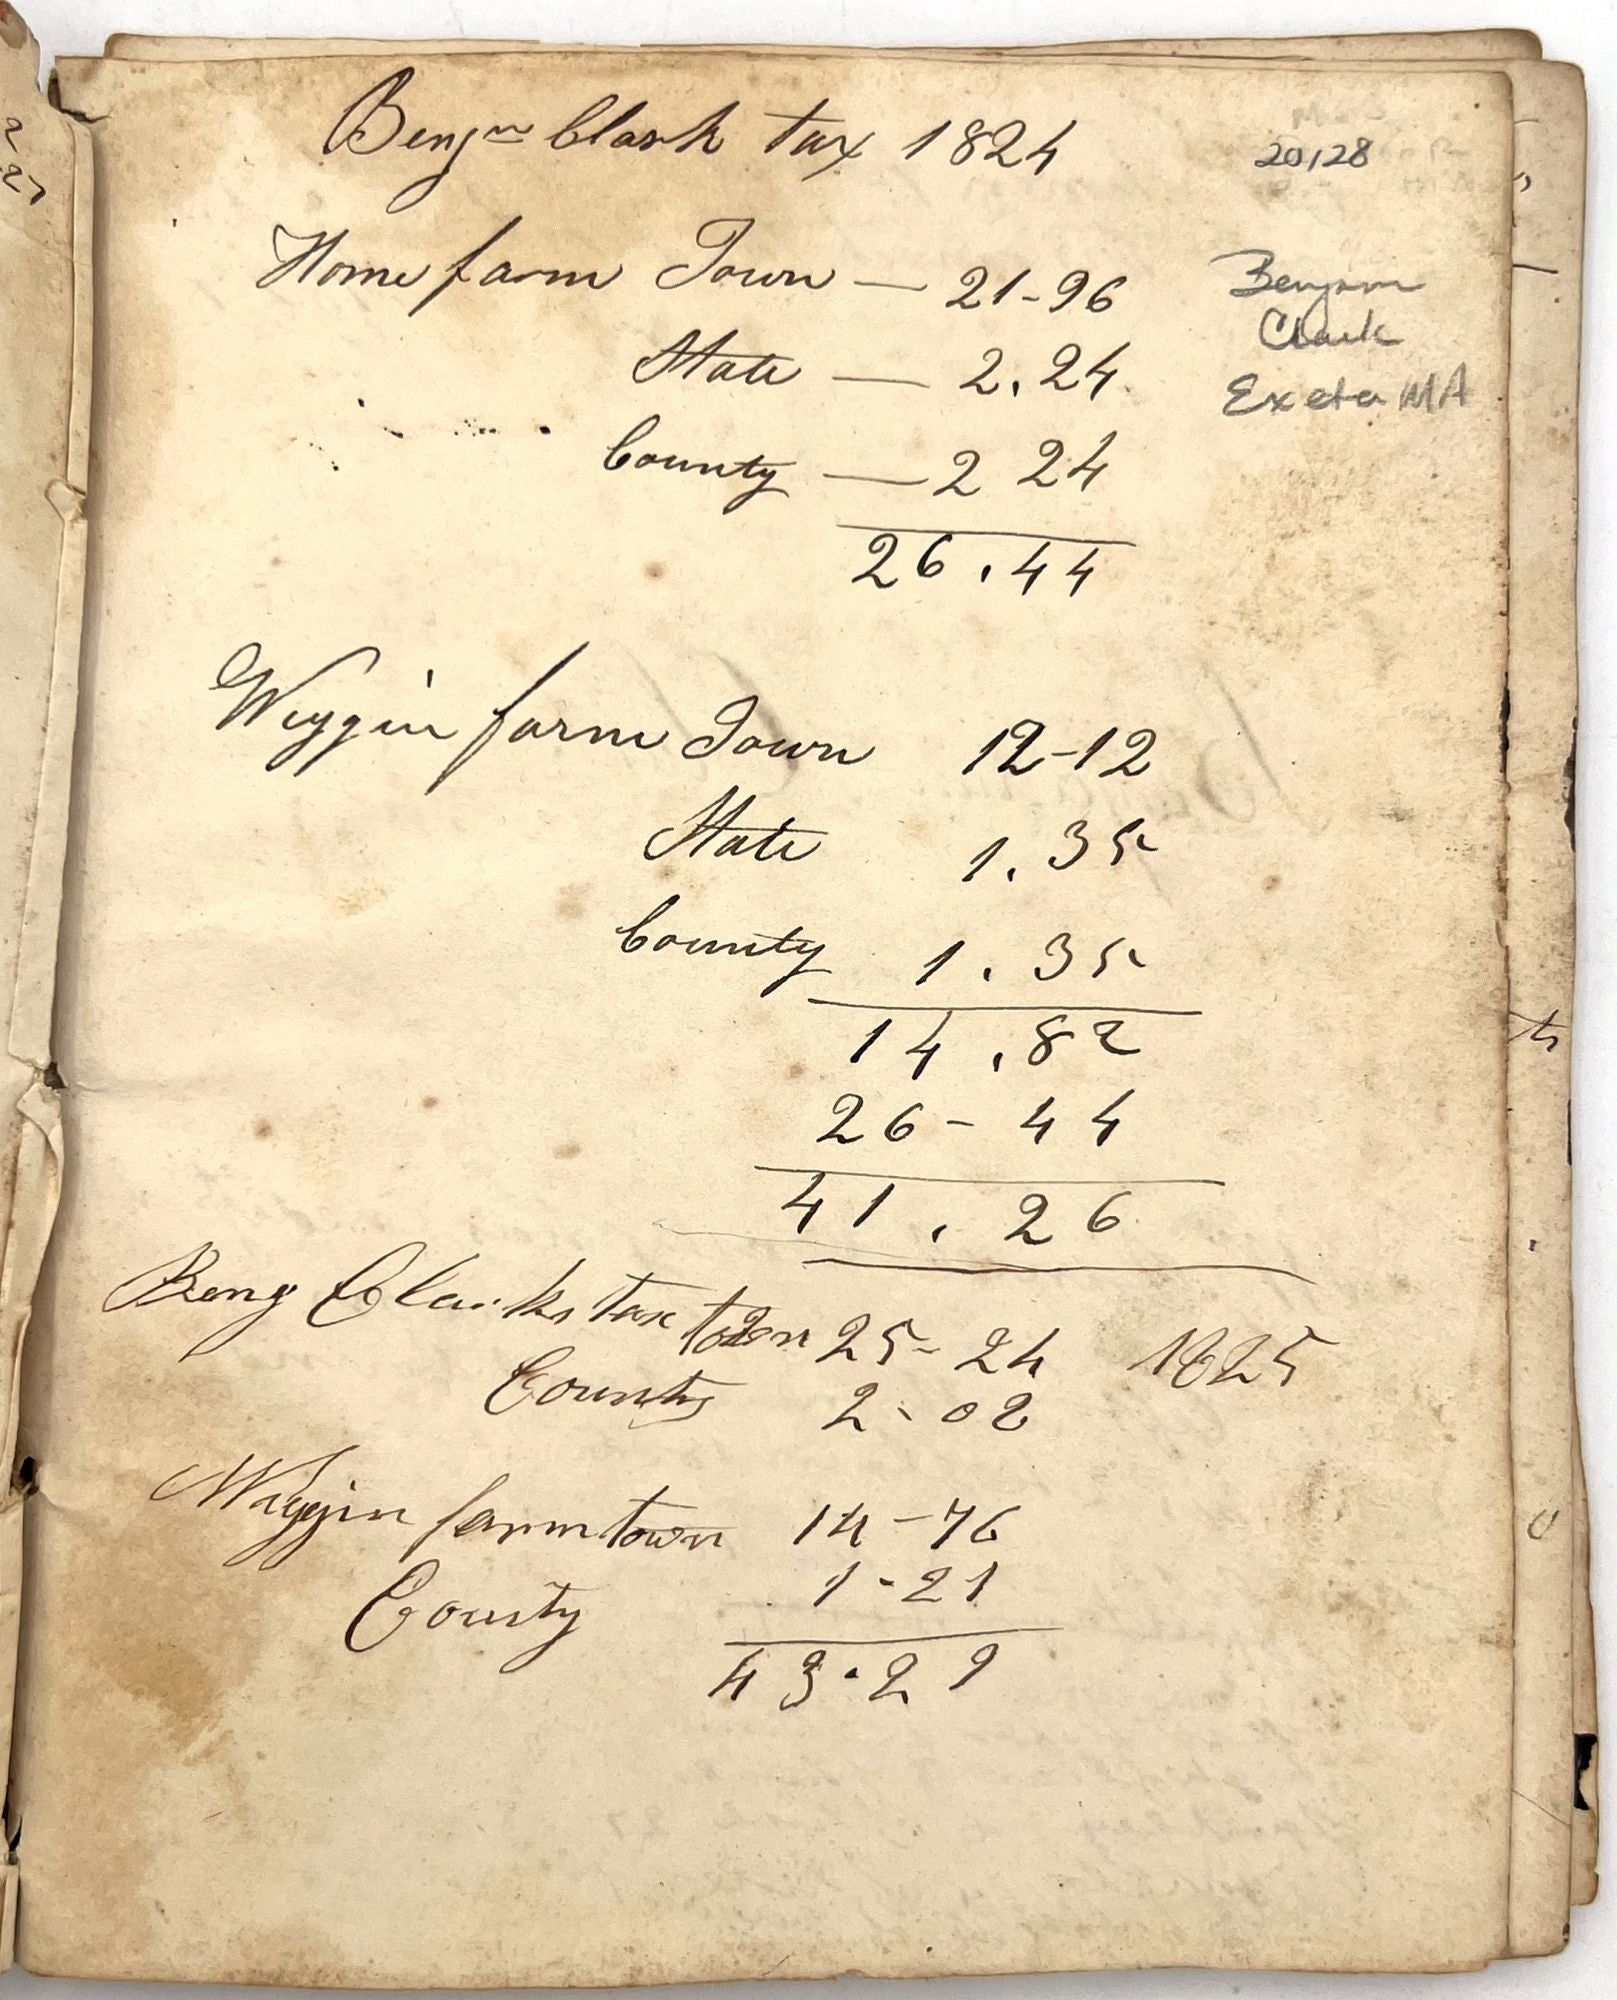 Benjn Clark tax 1824
20,28
Home farm Town — 21-96
State — 2.24
County — 2 24
26.44
Benjam
Clark
Exeter MA
Wiggin farm Town 12-12
State 1.35
County 1.35
14.82
26-44
41.26
Benj Clarks tax town 25-24 1825
County 2-02
Wiggin farm town 14-76
County 1-21
43.29
2
27